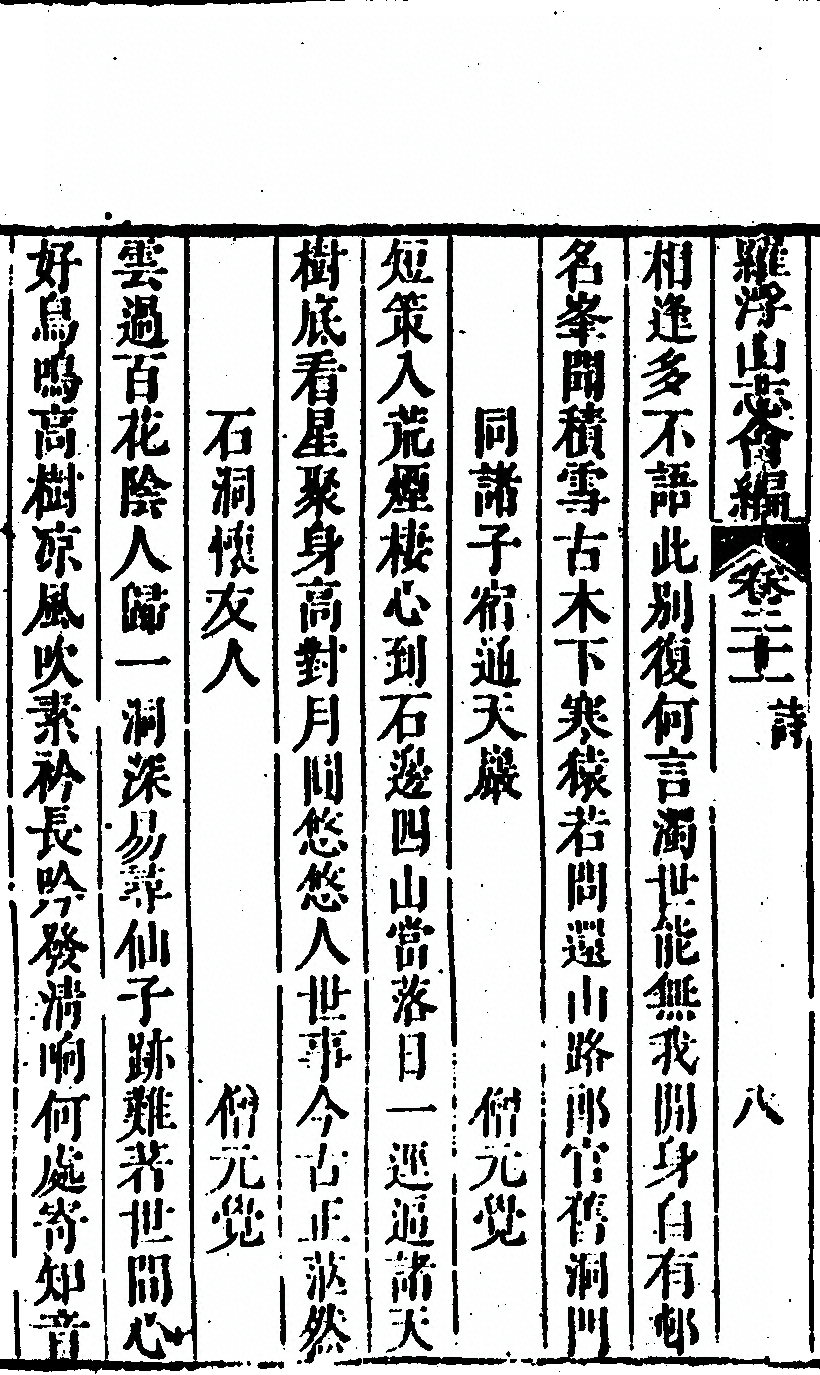 羅浮山志會編 卷二十一 詩 八
相逢多不語此别復何言濁世能無我閒身自有邨
名峯開積雪古木下寒猿若問還山路郎官舊洞門
同諸子宿通天巖 僧元覺
短策入荒煙棲心到石邊四山當落日一逕逼諸天
樹底看星聚身高對月圓悠悠人世事今古正茫然
石洞懷友人 僧元覺
雲過百花陰人歸一洞深易尋仙子跡難著世間心
好鳥鳴高樹凉風吹素衿長吟發清响何處寄知音